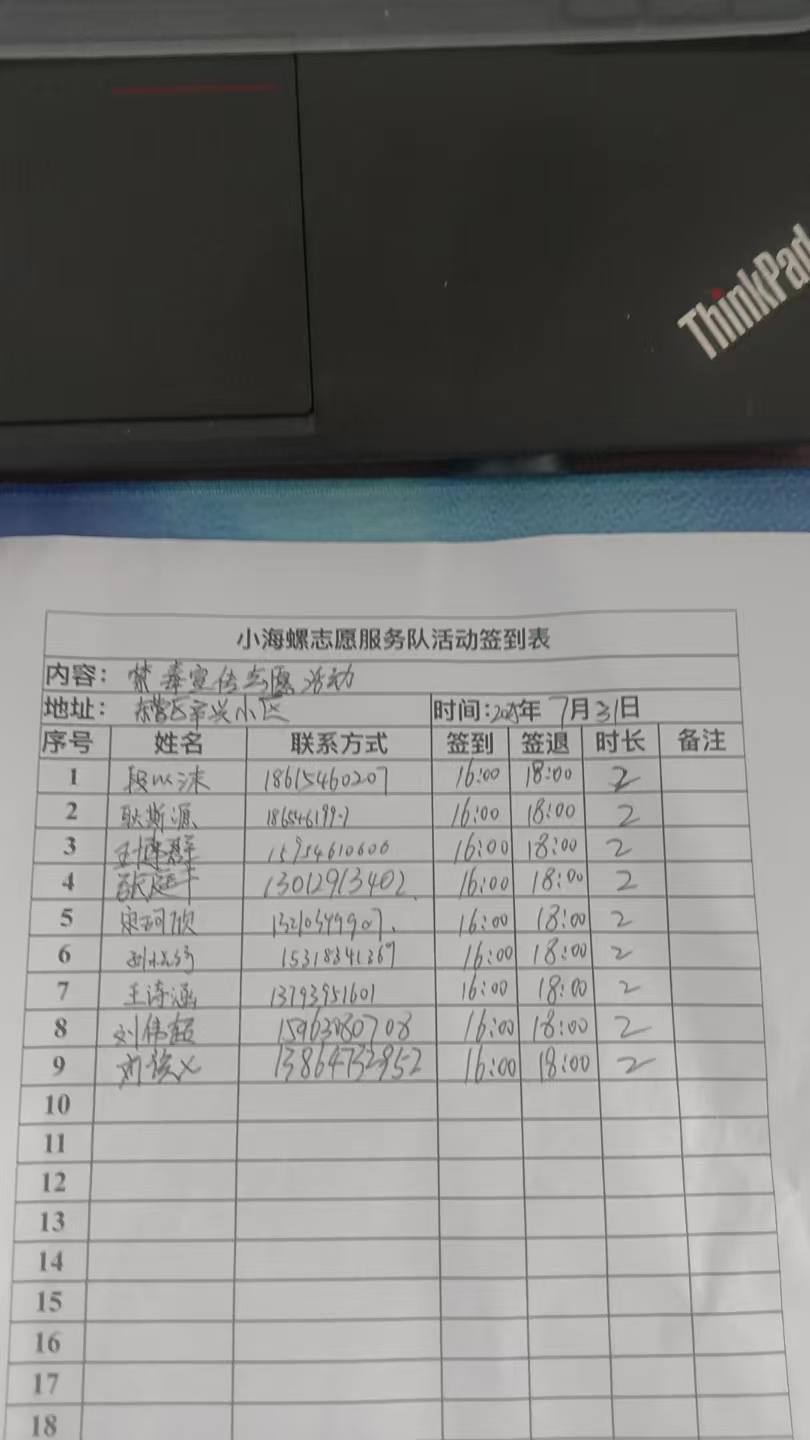 ThinkPad
小海螺志愿服务队活动签到表
内容： 禁毒宣传志愿活动
地址： 东营区辛兴小区 时间:2025年 7月31日
序号 姓名 联系方式 签到 签退 时长 备注
1 段以沫 18615460207 16:00 18:00 2
2 耿斯源 16:00 18:00 2
3 15954610600 16:00 18:00 2
4 13012913402 16:00 18:00 2
5 宋珂欣 13210399907 16:00 18:00 2
6 15318341367 16:00 18:00 2
7 王诗涵 13793951601 16:00 18:00 2
8 刘伟超 15963080708 16:00 18:00 2
9 13864732952 16:00 18:00 2
10
11
12
13
14
15
16
17
18